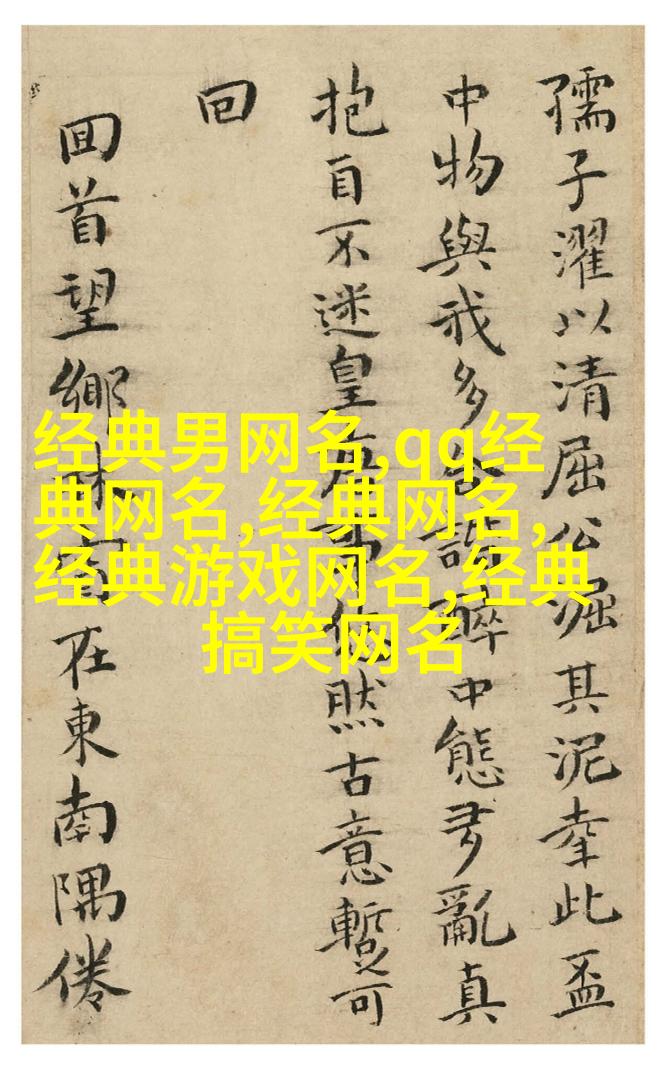 孺子濯以清屈公淈其泥幸此盃
中物與我多諧醉中態亂真
抱自不迷皇然古意暫可
回
回首望鄉在東南隅倦
经典男网名,qq经
典网名,经典网名,
经典游戏网名,经典
搞笑网名